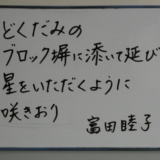 どくだみの
ブロック塀に添いて延び
星をいただくように
咲きおり
富田睦子